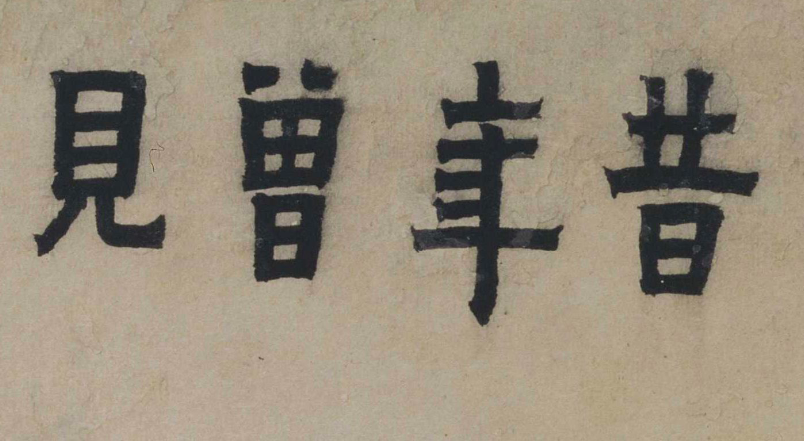 昔年曾見